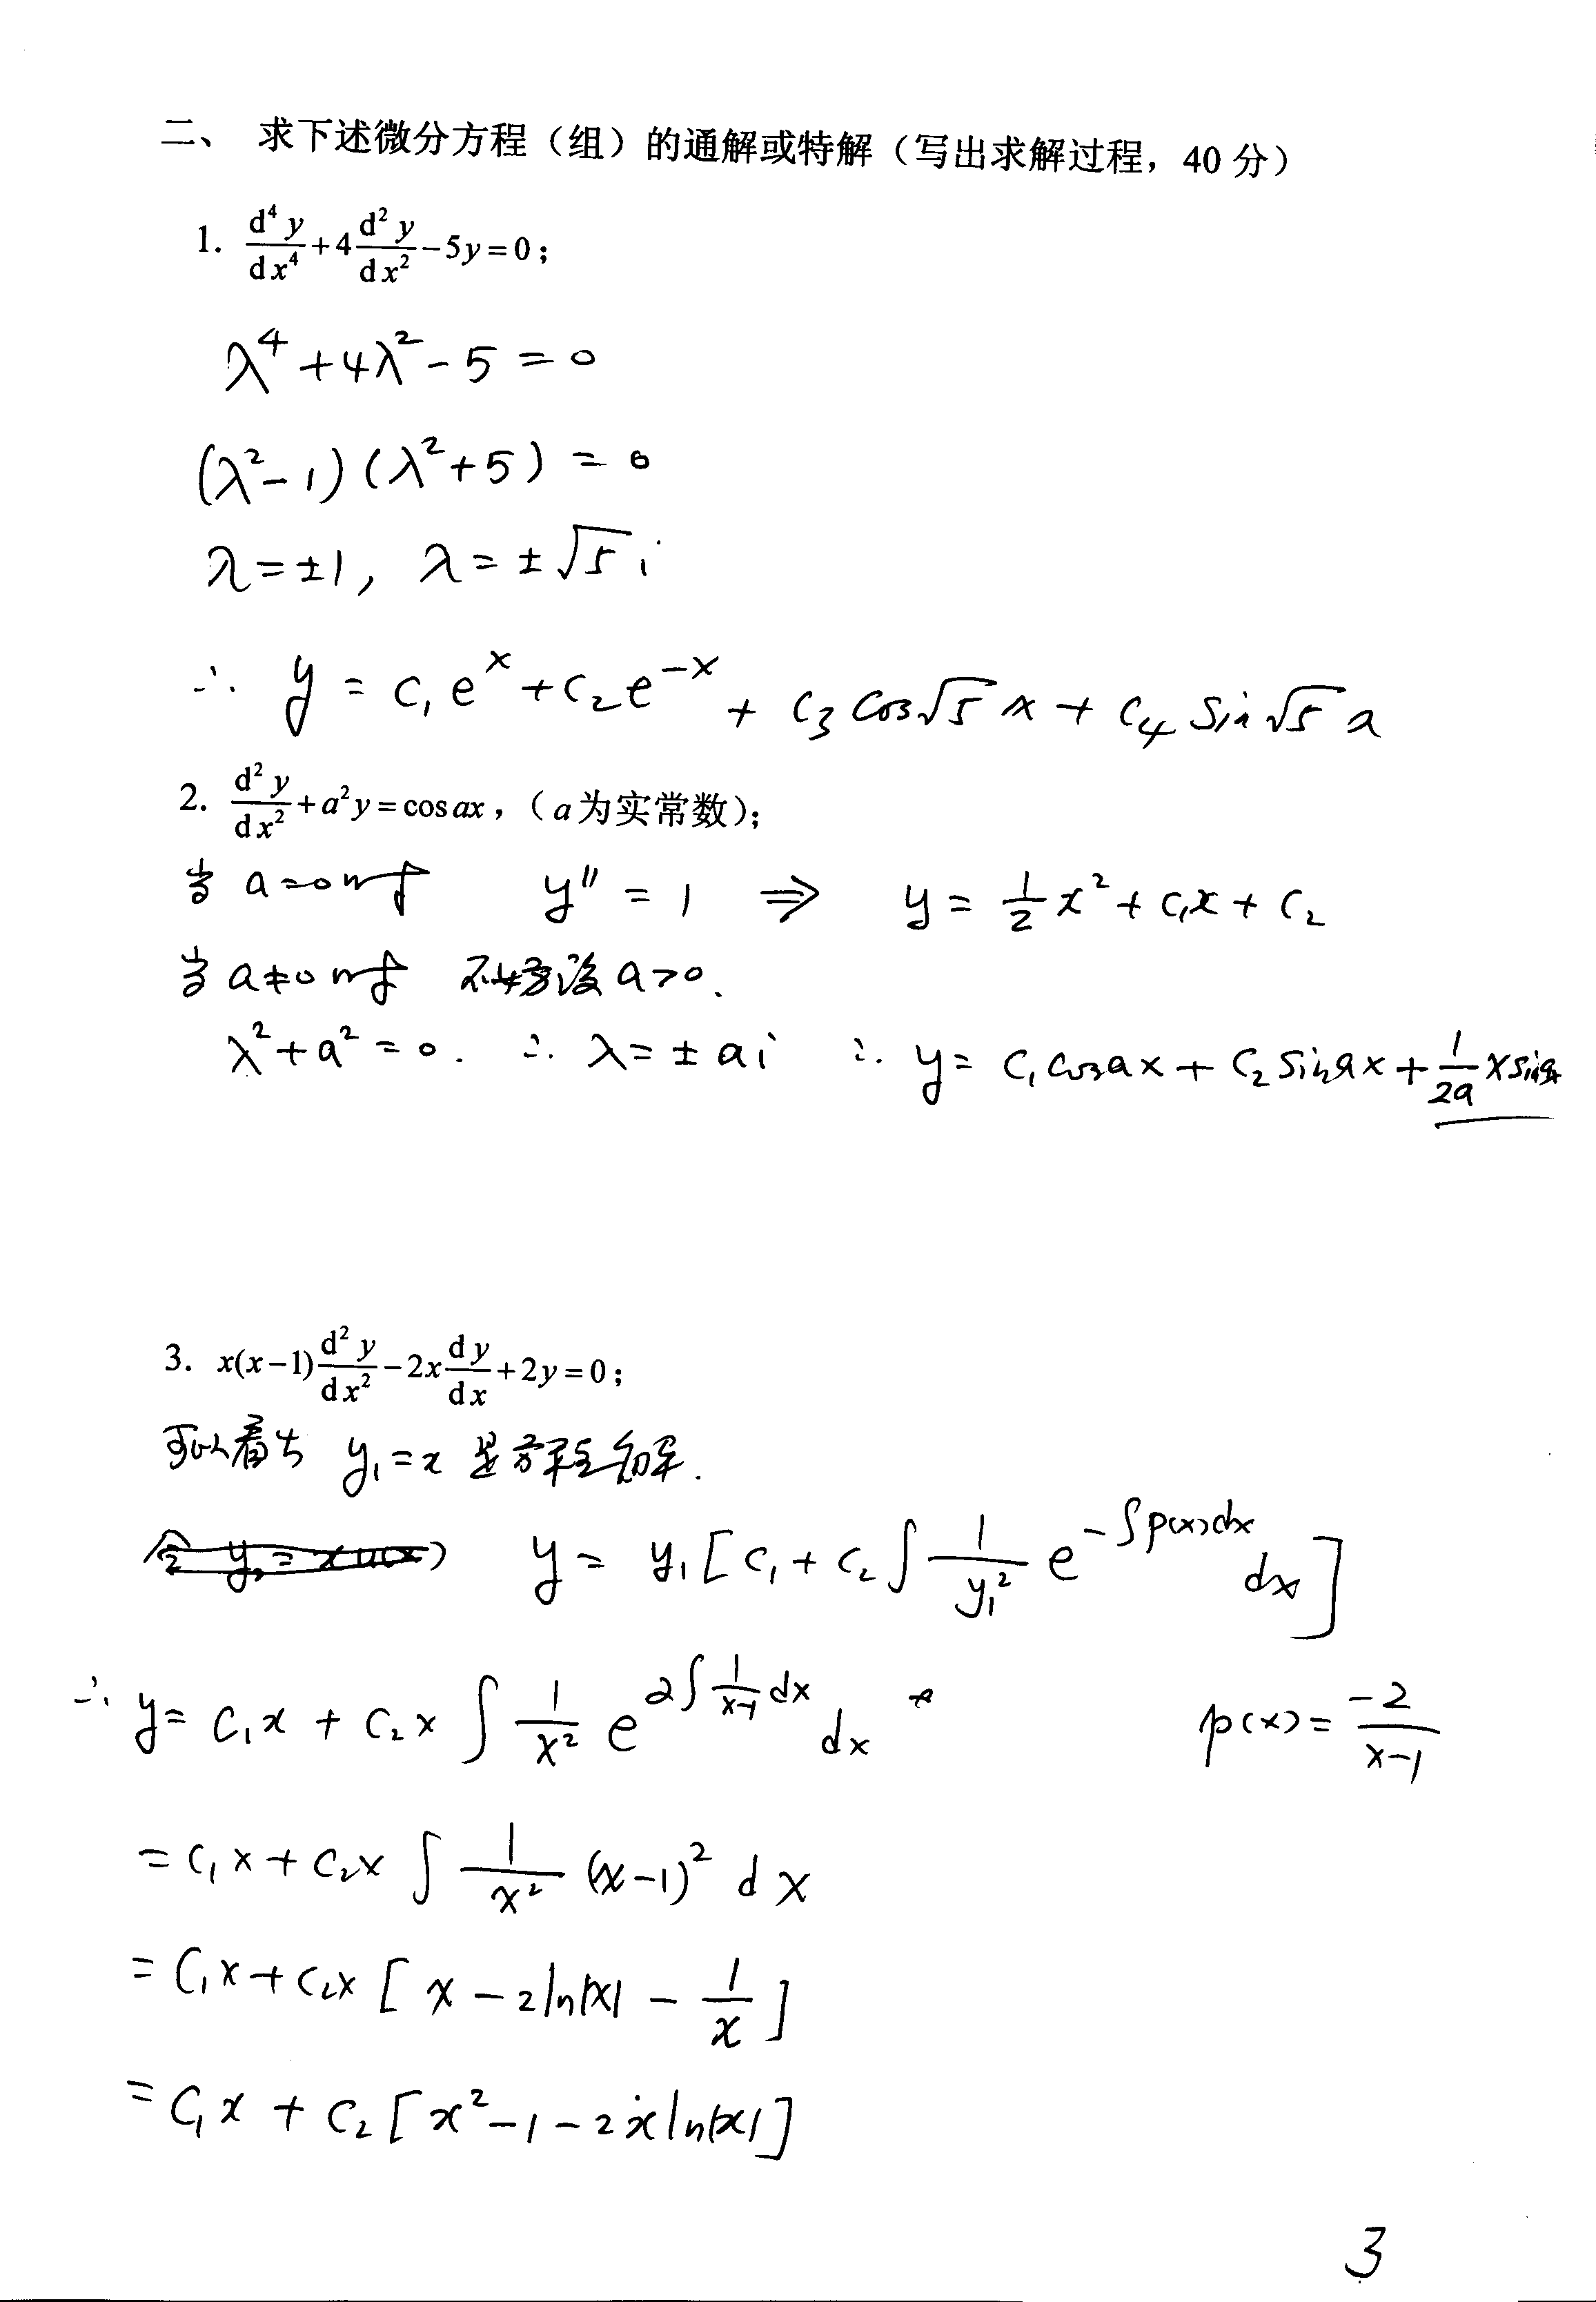 二、 求下述微分方程（组）的通解或特解（写出求解过程，40 分）
1. d⁴y/dx⁴ + 4 d²y/dx² − 5y = 0；
λ⁴ + 4λ² − 5 = 0
(λ² − 1)(λ² + 5) = 0
λ = ±1, λ = ±√5 i
∴ y = c₁eˣ + c₂e⁻ˣ + c₃ cos√5 x + c₄ sin√5 x
2. d²y/dx² + a²y = cos ax，（a为实常数）；
当 a=0时 y″ = 1 ⇒ y = 1/2 x² + c₁x + c₂
当 a≠0时 不妨设 a>0.
λ² + a² = 0. ∴ λ = ± ai ∴ y = c₁ cos ax + c₂ sin ax + 1/2a x sin ax
3. x(x−1) d²y/dx² − 2x dy/dx + 2y = 0；
可以看出 y₁ = x 是方程的解.
y = y₁[c₁ + c₂ ∫ 1/y₁² e^(−∫p(x)dx) dx]
∴ y = c₁x + c₂x ∫ 1/x² e^(2∫ 1/(x−1) dx) dx p(x) = −2/(x−1)
= c₁x + c₂x ∫ 1/x² (x−1)² dx
= c₁x + c₂x [x − 2ln|x| − 1/x]
= c₁x + c₂[x² − 1 − 2x ln|x|]
3